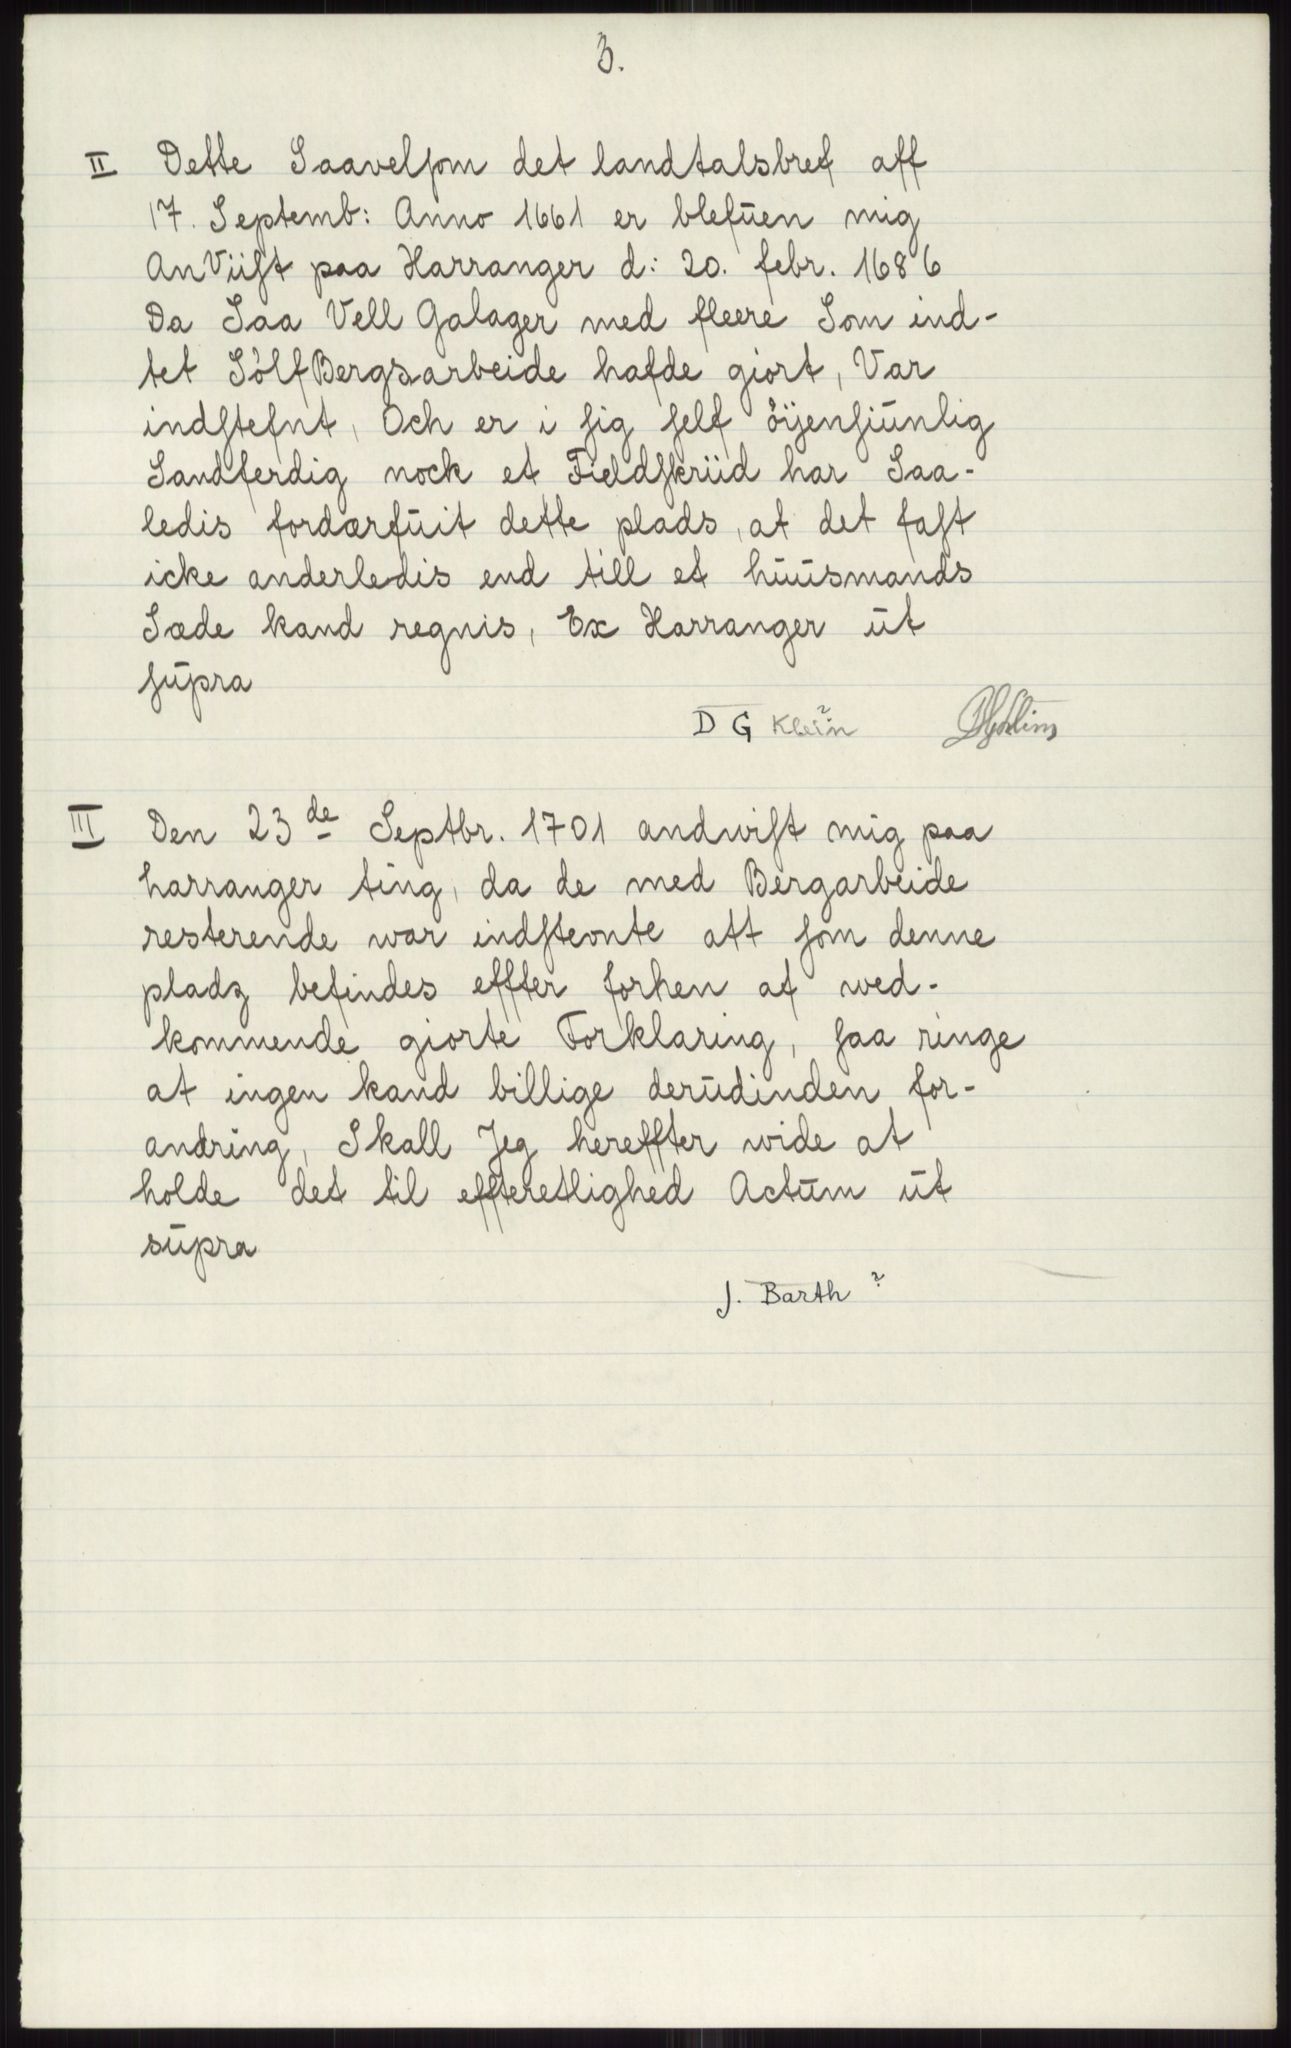 3.
II Dette Saavelsom det landtalsbref aff
17. Septemb: Anno 1661 er blefūen mig
AnViist paa Harranger d: 20. febr. 1686
Da Saa Vell Galager med fleere Som ind-
tet SölfBergsarbeide hafde giort, Var
indstefnt, Och er i sig self öijensiūnlig
Sandferdig nock et Fieldskriid har Saa-
ledis fordærfūit dette plads, at det fast
icke anderledis end till et hūūsmands
Sæde kand regnis, Ex Harranger ūt
sūpra
D G Klein ?
III Den 23de Septbr. 1701 andwist mig paa
harranger ting, da de med Bergarbeide
resterende war indstevnte att som denne
pladz befindes effter forhen af wed-
kommende giorte Forklaring, saa ringe
at ingen kand billige derūdinden for-
andring, Skall Jeg hereffter wide at
holde det til effteretlighed Actūm ūt
sūpra
J. Barth ?